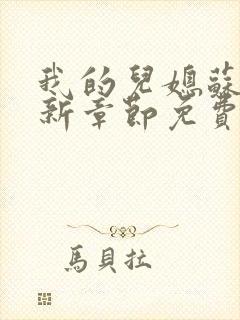 我的兒媳蘇
新章節免費
馬貝拉